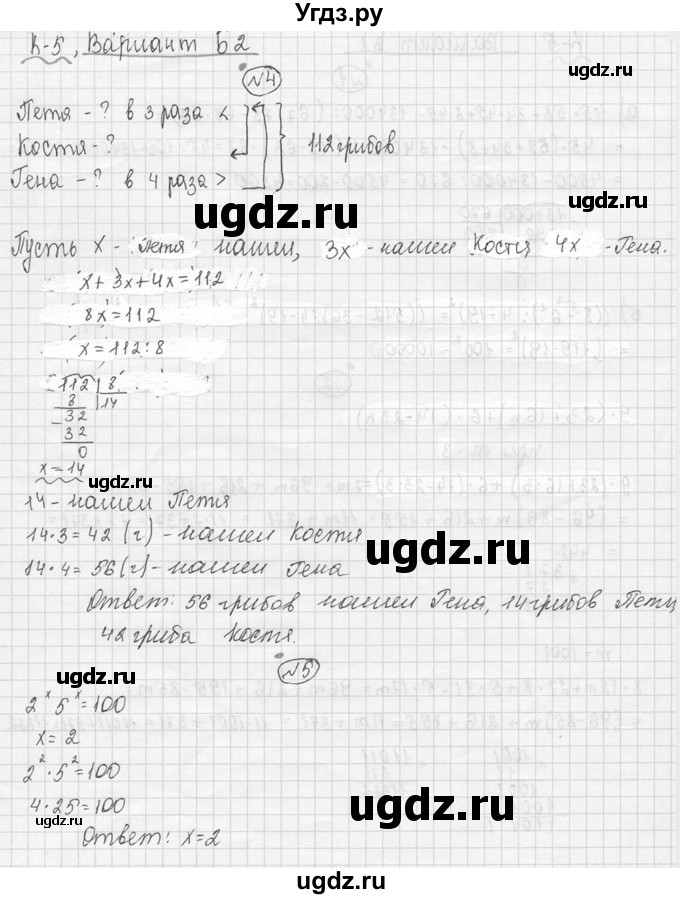 Угдз.ру
К-5, Вариант Б2
№4
Петя - ? в 3 раза <
Костя - ?
112 грибов
Гена - ? в 4 раза >
ugdz.ru
ugdz.ru
Пусть х - Петя нашел, 3х - нашел Костя 4х - Гена.
х + 3х + 4х = 112
8х = 112
х = 112 : 8
112 8
8 14
- 32
32
0
х = 14
ugdz.ru
ugdz.ru
14 - нашел Петя
14 · 3 = 42 (г) - нашел Костя
ugdz.ru
14 · 4 = 56 (г) - нашел Гена
Ответ: 56 грибов нашел Гена, 14 грибов Петя,
42 гриба Костя.
№5
ugdz.ru
2ˣ 5ˣ = 100
х = 2
2² · 5² = 100
ugdz.ru
4 · 25 = 100
ugdz.ru
ugdz.ru
Ответ: х = 2
ugdz.ru